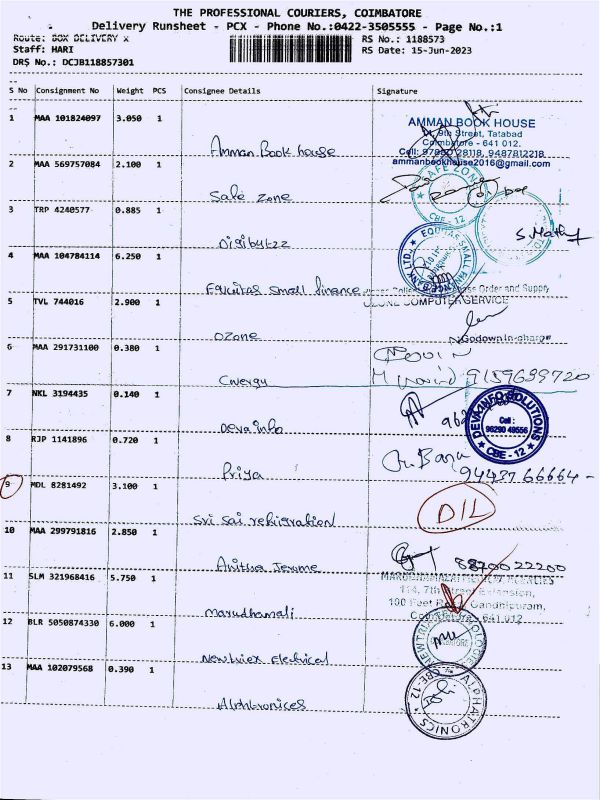 THE PROFESSIONAL COURIERS, COIMBATORE
Delivery Runsheet - PCX - Phone No.:0422-3505555 - Page No.:1
Route: BOX DELIVERY x RS No.: 1188573
Staff: HARI RS Date: 15-Jun-2023
DRS No.: DCJB118857301
S No Consignment No Weight PCS Consignee Details Signature
1 MAA 101824097 3.050 1
Amman Book house
AMMAN BOOK HOUSE
9th Street, Tatabad
Coimbatore - 641 012.
Cell: 28118, 9487812218
ammanbookhouse2016@gmail.com
2 MAA 569757084 2.100 1
Safe zone
SAFE ZONE
CBE - 12
3 TRP 4240577 0.885 1
Digibytzz
S. Mathy
4 MAA 104784114 6.250 1
Equitas small finance
EQUITAS SMALL FINANCE BANK LTD.
Order and Supply
5 TVL 744016 2.900 1
OZONE COMPUTER SERVICE
ozone
Godown In-charge
6 MAA 291731100 0.380 1
9159699720
7 NKL 3194435 0.140 1
Deva info
DEVA INFO SOLUTIONS
Cell :
96290 49556
CBE - 12
8 RJP 1141896 0.720 1
Priya
9 MDL 8281492 3.100 1
Sri sai refrigration
DIL
10 MAA 299791816 2.850 1
Anitha Jerume
8870022200
11 SLM 321968416 5.750 1
114, 7th Street Extension,
100 Feet Road, Gandhipuram,
Coimbatore - 641 012
Marudhamali
12 BLR 5050874330 6.000 1
Newtriex Electrical
13 MAA 102079568 0.390 1
Alphtronices
ALPHATRONICS
CBE-12